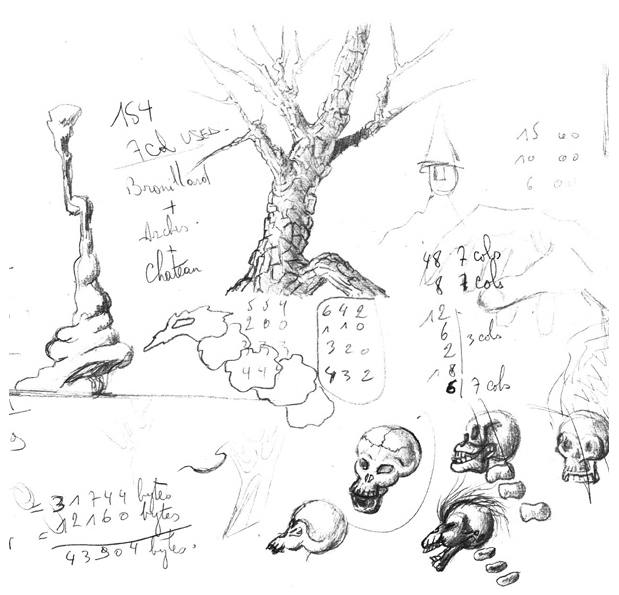 154
7 col USED.
Brouillard
+
Arches.
+
Chateau
15 00
10 00
6 00
48 7 cols
8 7 cols
12
6
2
3 cols
18
6 7 cols
5 5 4
2 0 0
4 4
6 4 2
1 1 0
3 2 0
4 3 2
= 31744 bytes
12160 bytes
= 43904 bytes.